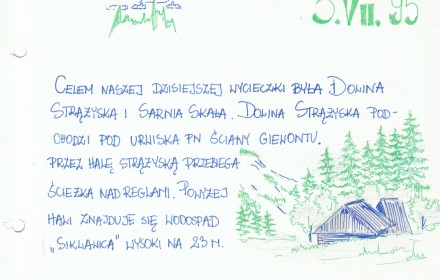 5.VII.95
CELEM NASZEJ DZISIEJSZEJ WYCIECZKI BYŁA DOLINA
STRĄŻYSKA I SARNIA SKAŁA. DOLINA STRĄŻYSKA POD-
CHODZI POD URWISKA PN ŚCIANY GIEWONTU.
PRZEZ HALĘ STRĄŻYSKĄ PRZEBIEGA
ŚCIEŻKA NAD REGLAMI. POWYŻEJ
HALI ZNAJDUJE SIĘ WODOSPAD
„SIKLAWICA" WYSOKI NA 23 M.